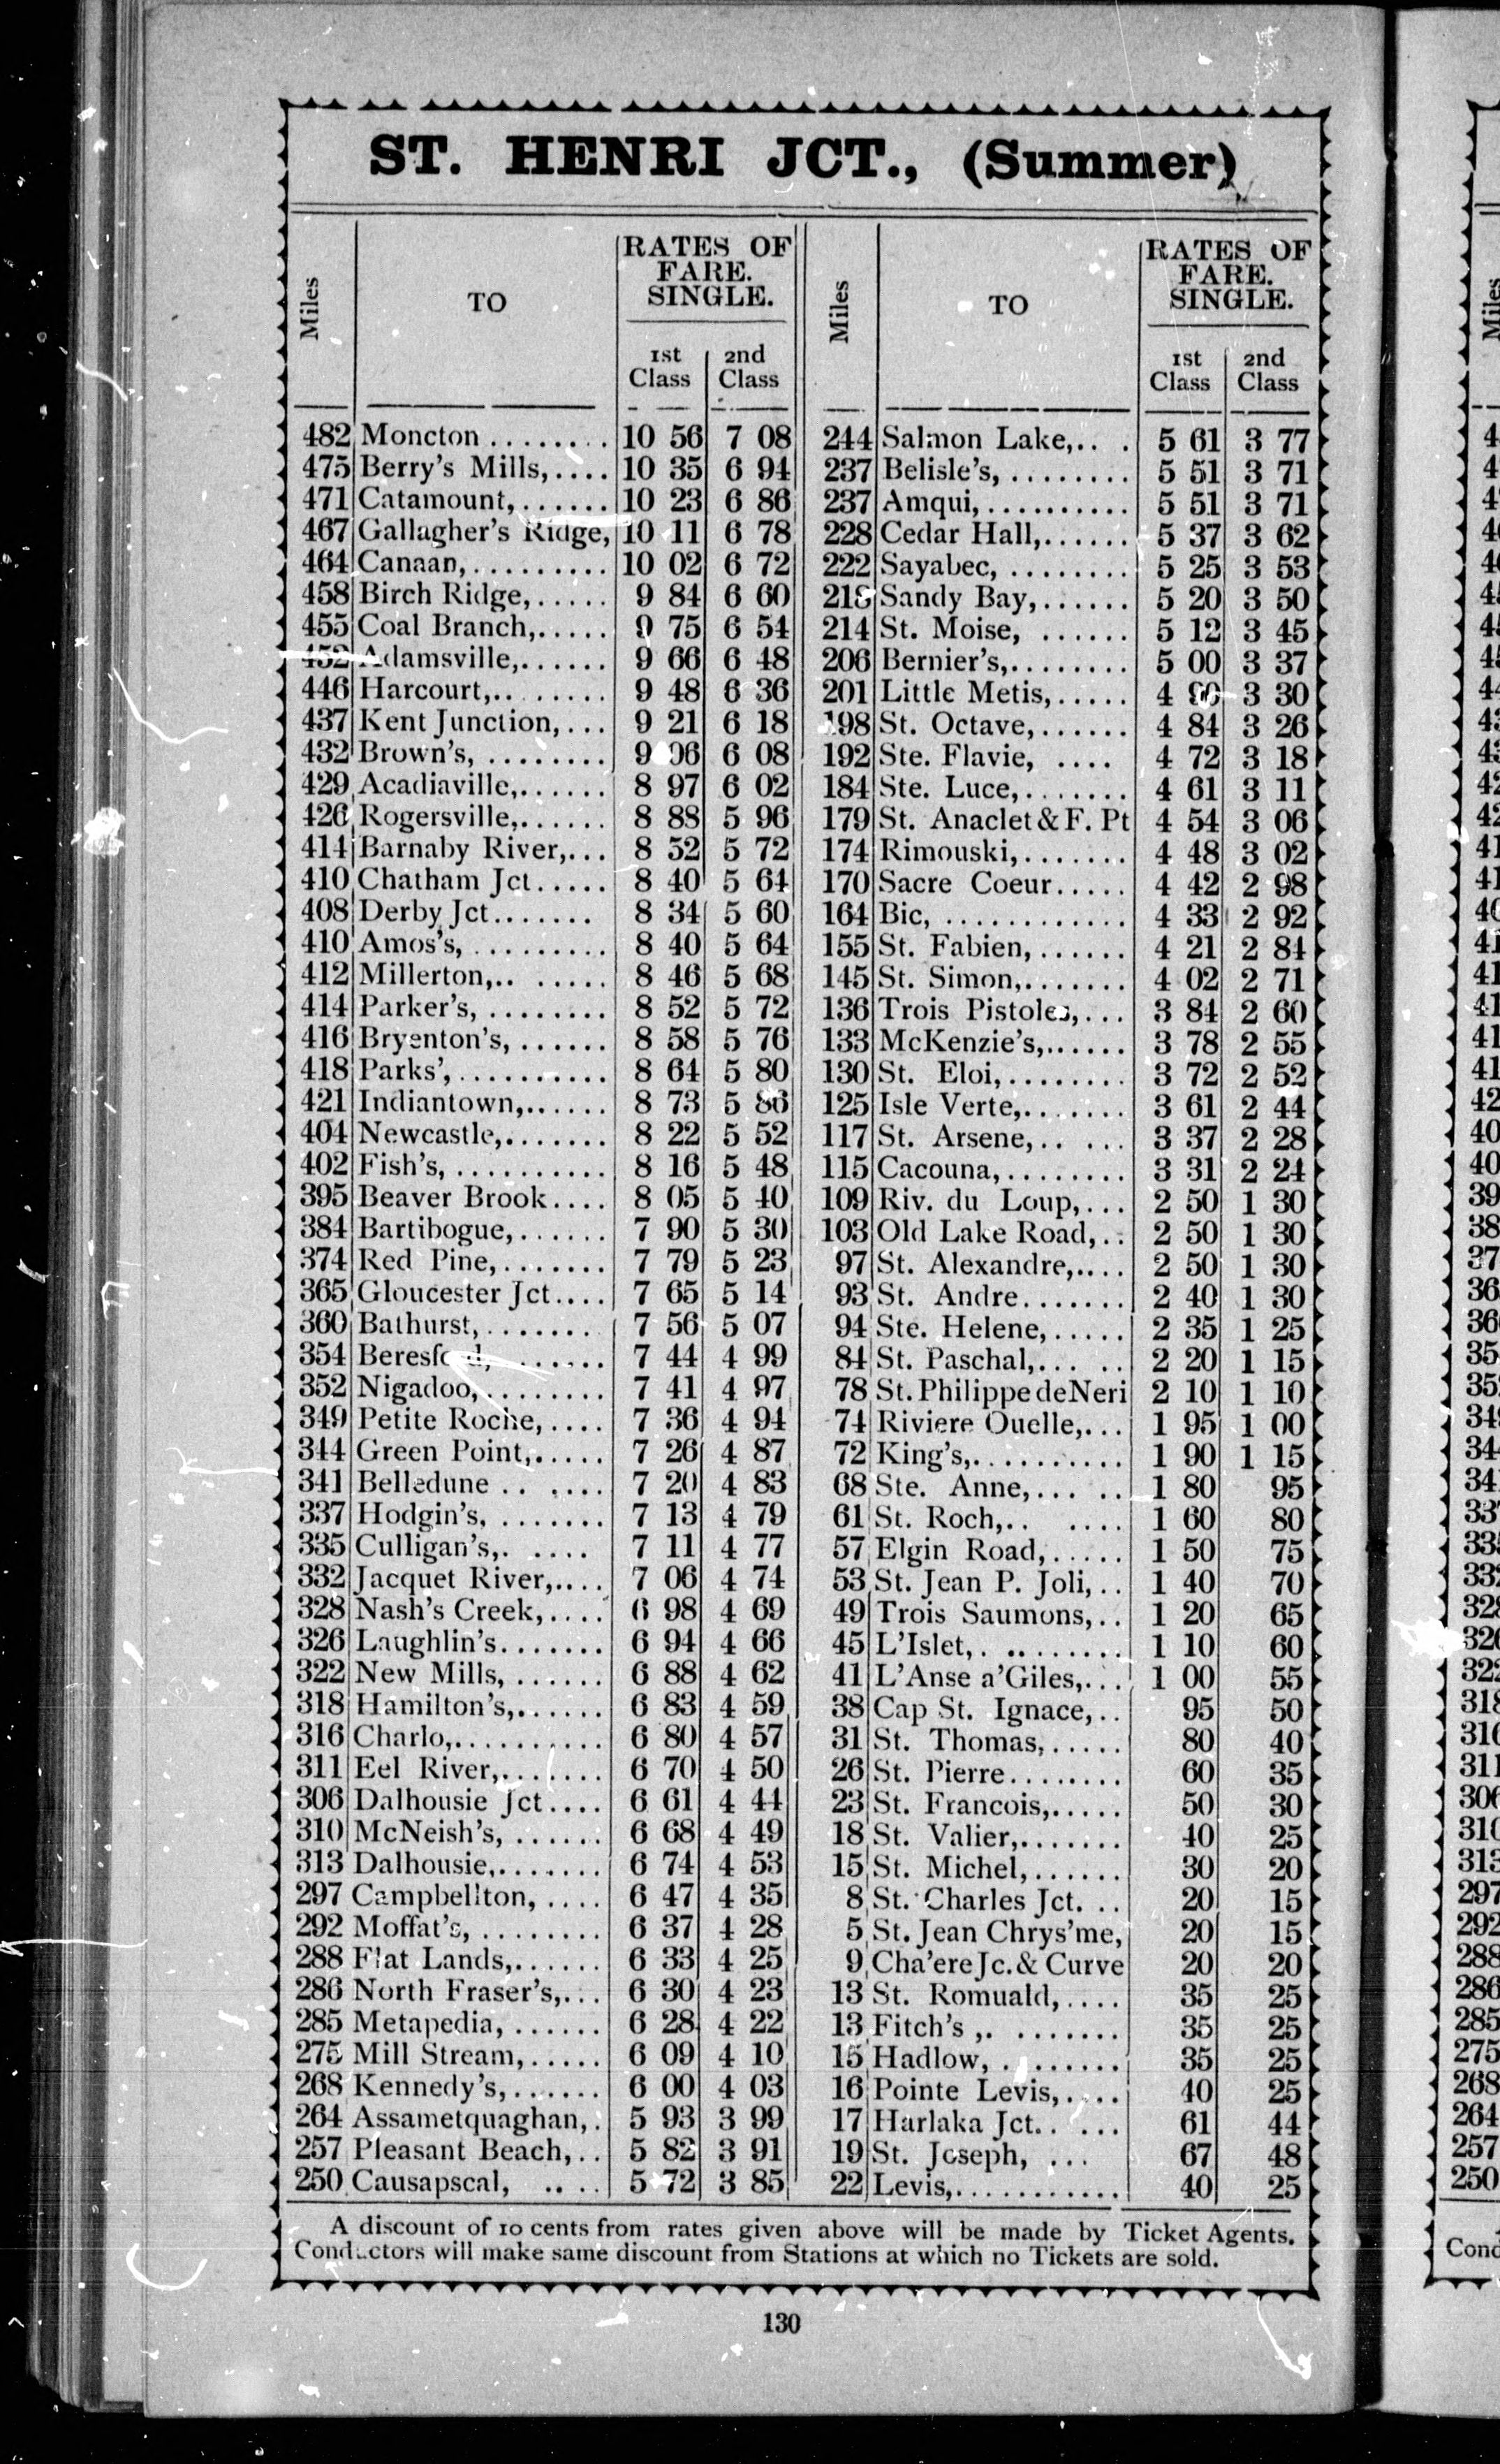 ST. HENRI JCT., (Summer)
Miles TO RATES OF FARE. SINGLE. 1st Class 2nd Class
482 Moncton ........ 10 56 7 08
475 Berry's Mills,.... 10 35 6 94
471 Catamount,...... 10 23 6 86
467 Gallagher's Ridge, 10 11 6 78
464 Canaan,......... 10 02 6 72
458 Birch Ridge,..... 9 84 6 60
455 Coal Branch,..... 9 75 6 54
452 Adamsville,...... 9 66 6 48
446 Harcourt,........ 9 48 6 36
437 Kent Junction,... 9 21 6 18
432 Brown's, ........ 9 06 6 08
429 Acadiaville,...... 8 97 6 02
426 Rogersville,...... 8 88 5 96
414 Barnaby River,... 8 52 5 72
410 Chatham Jct..... 8 40 5 64
408 Derby Jct....... 8 34 5 60
410 Amos's, ......... 8 40 5 64
412 Millerton,.. ..... 8 46 5 68
414 Parker's, ........ 8 52 5 72
416 Bryenton's, ...... 8 58 5 76
418 Parks',.......... 8 64 5 80
421 Indiantown,...... 8 73 5 86
404 Newcastle,....... 8 22 5 52
402 Fish's, .......... 8 16 5 48
395 Beaver Brook.... 8 05 5 40
384 Bartibogue,...... 7 90 5 30
374 Red Pine,....... 7 79 5 23
365 Gloucester Jct.... 7 65 5 14
360 Bathurst,........ 7 56 5 07
354 Beresford, ...... 7 44 4 99
352 Nigadoo,........ 7 41 4 97
349 Petite Roche,.... 7 36 4 94
344 Green Point,..... 7 26 4 87
341 Belledune .. .... 7 20 4 83
337 Hodgin's, ....... 7 13 4 79
335 Culligan's,. .... 7 11 4 77
332 Jacquet River,.... 7 06 4 74
328 Nash's Creek,.... 6 98 4 69
326 Laughlin's....... 6 94 4 66
322 New Mills, ...... 6 88 4 62
318 Hamilton's,...... 6 83 4 59
316 Charlo,.......... 6 80 4 57
311 Eel River,....... 6 70 4 50
306 Dalhousie Jct.... 6 61 4 44
310 McNeish's, ...... 6 68 4 49
313 Dalhousie,....... 6 74 4 53
297 Campbellton, .... 6 47 4 35
292 Moffat's, ........ 6 37 4 28
288 Flat Lands,...... 6 33 4 25
286 North Fraser's,... 6 30 4 23
285 Metapedia, ...... 6 28 4 22
275 Mill Stream,..... 6 09 4 10
268 Kennedy's,...... 6 00 4 03
264 Assametquaghan,. 5 93 3 99
257 Pleasant Beach,.. 5 82 3 91
250 Causapscal, .. .. 5 72 3 85
Miles TO RATES OF FARE. SINGLE. 1st Class 2nd Class
244 Salmon Lake,.. . 5 61 3 77
237 Belisle's, ........ 5 51 3 71
237 Amqui,.......... 5 51 3 71
228 Cedar Hall,...... 5 37 3 62
222 Sayabec, ........ 5 25 3 53
218 Sandy Bay,...... 5 20 3 50
214 St. Moise, ...... 5 12 3 45
206 Bernier's,........ 5 00 3 37
201 Little Metis,..... 4 90 3 30
198 St. Octave,...... 4 84 3 26
192 Ste. Flavie, .... 4 72 3 18
184 Ste. Luce,....... 4 61 3 11
179 St. Anaclet & F. Pt 4 54 3 06
174 Rimouski,....... 4 48 3 02
170 Sacre Coeur..... 4 42 2 98
164 Bic, ............ 4 33 2 92
155 St. Fabien,...... 4 21 2 84
145 St. Simon,....... 4 02 2 71
136 Trois Pistoles,... 3 84 2 60
133 McKenzie's,...... 3 78 2 55
130 St. Eloi,........ 3 72 2 52
125 Isle Verte,....... 3 61 2 44
117 St. Arsene,.. ... 3 37 2 28
115 Cacouna,........ 3 31 2 24
109 Riv. du Loup,... 2 50 1 30
103 Old Lake Road,.. 2 50 1 30
97 St. Alexandre,.... 2 50 1 30
93 St. Andre....... 2 40 1 30
94 Ste. Helene,..... 2 35 1 25
84 St. Paschal,... .. 2 20 1 15
78 St. Philippe de Neri 2 10 1 10
74 Riviere Ouelle,... 1 95 1 00
72 King's,.......... 1 90 1 15
68 Ste. Anne,... .. 1 80 95
61 St. Roch,.. .... 1 60 80
57 Elgin Road,..... 1 50 75
53 St. Jean P. Joli,.. 1 40 70
49 Trois Saumons,.. 1 20 65
45 L'Islet,. ......... 1 10 60
41 L'Anse a'Giles,... 1 00 55
38 Cap St. Ignace,.. 95 50
31 St. Thomas,..... 80 40
26 St. Pierre........ 60 35
23 St. Francois,..... 50 30
18 St. Valier,....... 40 25
15 St. Michel,...... 30 20
8 St. Charles Jct. .. 20 15
5 St. Jean Chrys'me, 20 15
9 Cha'ere Jc. & Curve 20 20
13 St. Romuald,.... 35 25
13 Fitch's ,. ....... 35 25
15 Hadlow, ........ 35 25
16 Pointe Levis,.... 40 25
17 Harlaka Jct.. ... 61 44
19 St. Joseph, ... 67 48
22 Levis,........... 40 25
A discount of 10 cents from rates given above will be made by Ticket Agents.
Conductors will make same discount from Stations at which no Tickets are sold.
130